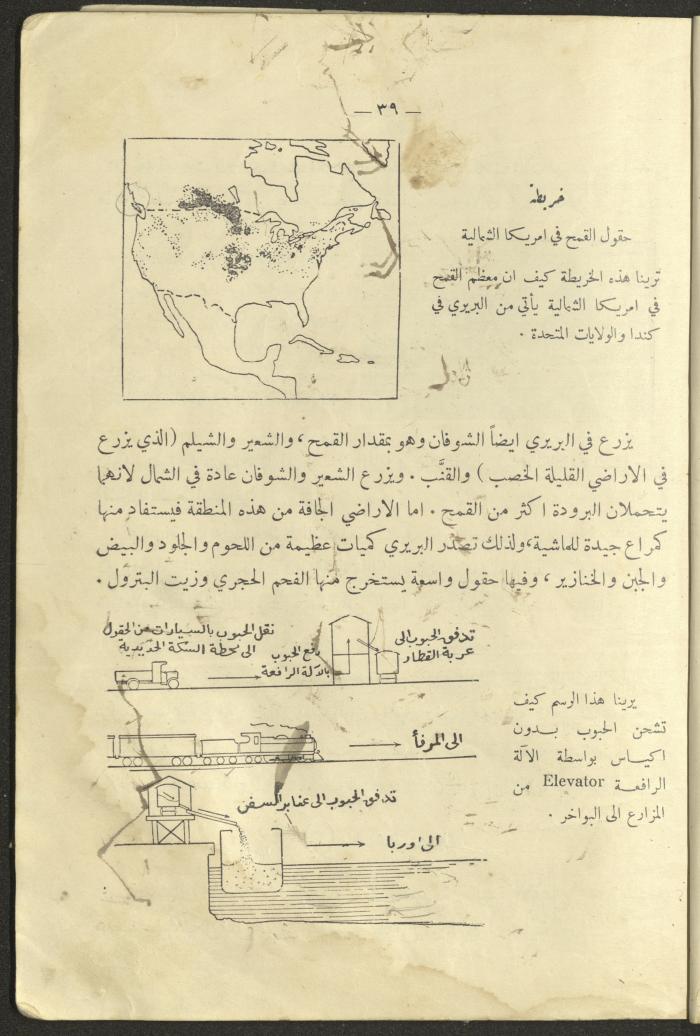 — ٣٩ —
خريطة
حقول القمح في امريكا الشمالية
ترينا هذه الخريطة كيف ان معظم القمح
في امريكا الشمالية يأتي من البريري في
كندا والولايات المتحدة .
يزرع في البريري ايضاً الشوفان وهو بمقدار القمح ، والشعير والشيلم (الذي يزرع
في الاراضي القليلة الخصب ) والقنَّب . ويزرع الشعير والشوفان عادة في الشمال لانهما
يتحملان البرودة اكثر من القمح . اما الاراضي الجافة من هذه المنطقة فيستفاد منها
كمراع جيدة للماشية، ولذلك تصدر البريري كميات عظيمة من اللحوم والجلود والبيض
والجبن والخنازير ، وفيها حقول واسعة يستخرج منها الفحم الحجري وزيت البترول .
نقل الحبوب بالسيارات من الحقول
الى محطة السكة الحديدية
رفع الحبوب
بالآلة الرافعة
تدفق الحبوب الى
عربة القطار
الى المرفأ
تدفق الحبوب الى عنابر السفن
الى اوربا
يرينا هذا الرسم كيف
تشحن الحبوب بدون
اكياس بواسطة الآلة
الرافعة Elevator من
المزارع الى البواخر .